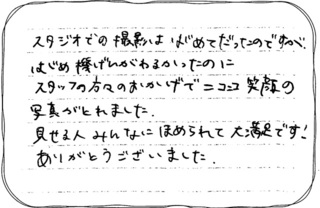 スタジオでの撮影ははじめてだったのですが、
はじめ機げんがわるかったのに
スタッフの方々のおかげでニコニコ笑顔の
写真がとれました.
見せる人みんなにほめられて大満足です!
ありがとうございました.